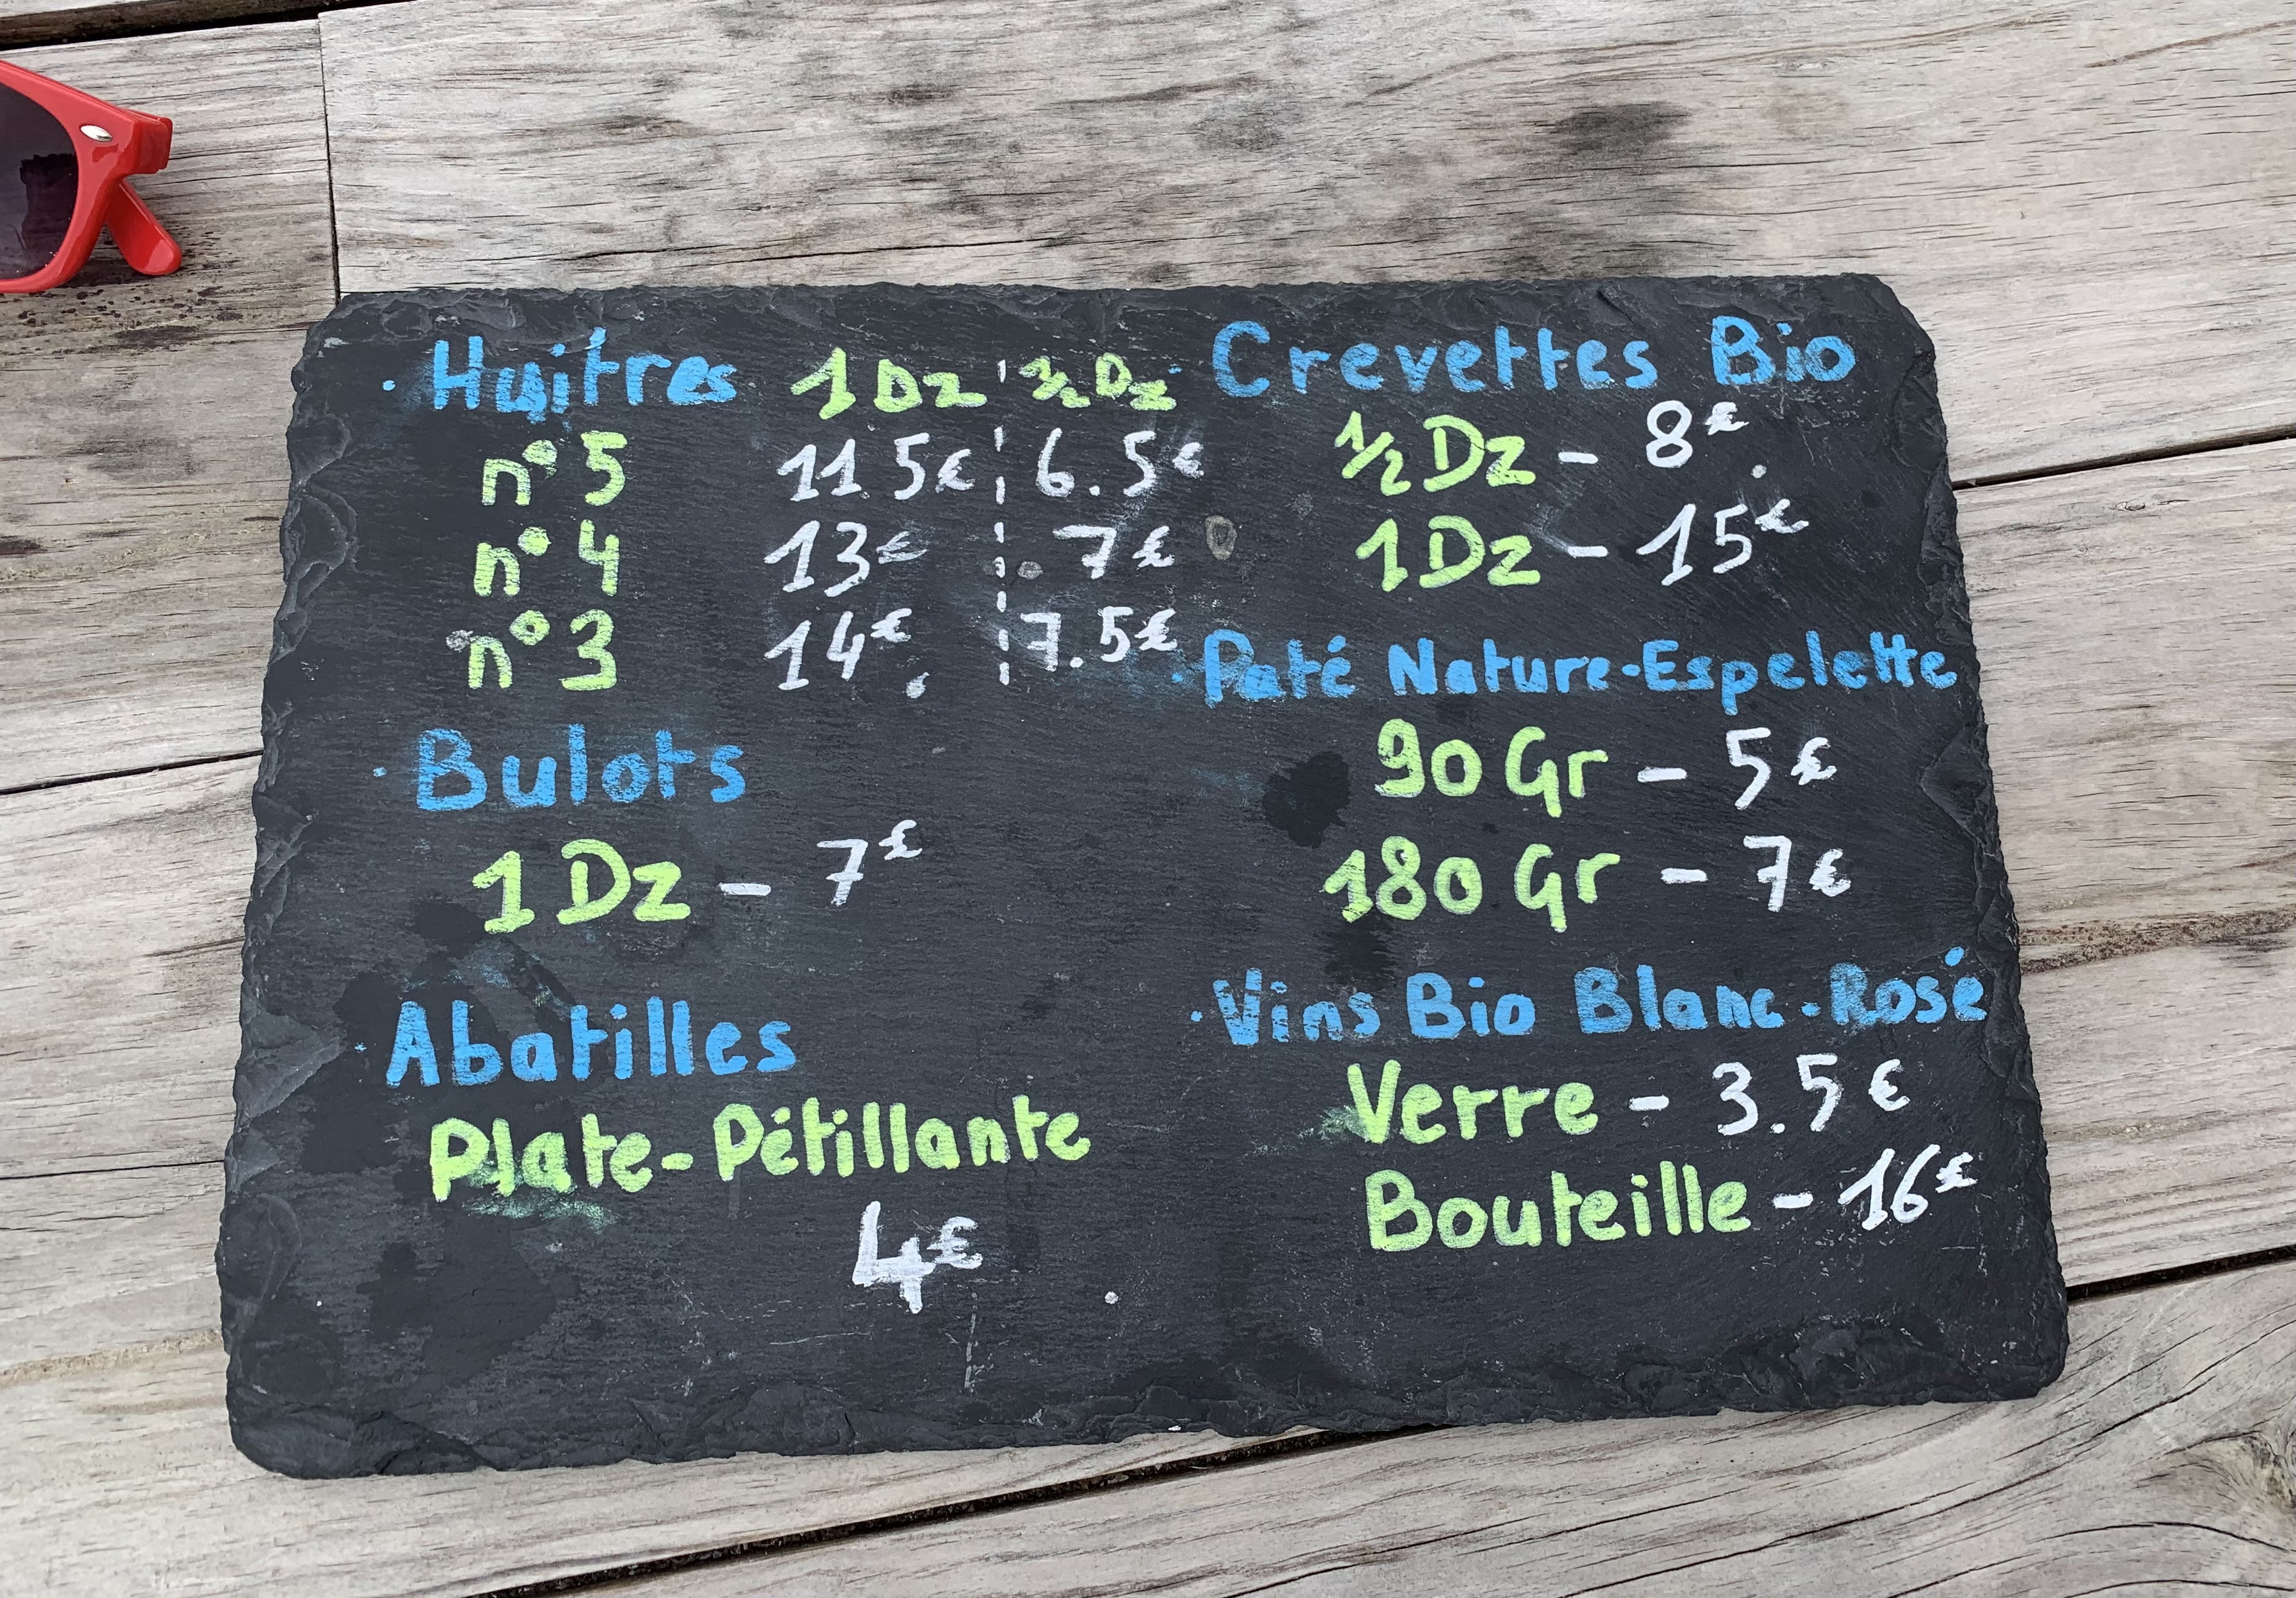 · Huîtres 1 Dz ¦ 1/2 Dz
n°5 11.5€ ¦ 6.5€
n°4 13€ ¦ 7€
n°3 14€ ¦ 7.5€
· Bulots
1 Dz - 7€
· Abatilles
Plate-Pétillante
4€
· Crevettes Bio
1/2 Dz - 8€
1 Dz - 15€
· Paté Nature-Espelette
90 Gr - 5€
180 Gr - 7€
· Vins Bio Blanc-Rosé
Verre - 3.5€
Bouteille - 16€